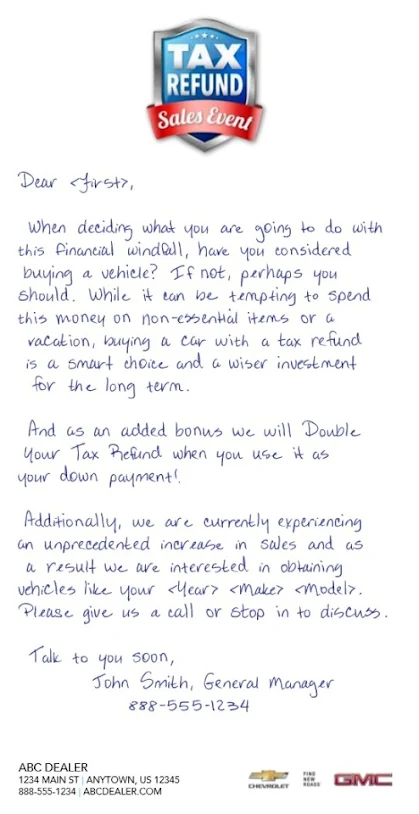 TAX
REFUND
Sales Event
Dear <First>,
When deciding what you are going to do with
this financial windfall, have you considered
buying a vehicle? If not, perhaps you
should. While it can be tempting to spend
this money on non-essential items or a
vacation, buying a car with a tax refund
is a smart choice and a wiser investment
for the long term.
And as an added bonus we will Double
Your Tax Refund when you use it as
your down payment!
Additionally, we are currently experiencing
an unprecedented increase in sales and as
a result we are interested in obtaining
vehicles like your <Year> <Make> <Model>.
Please give us a call or stop in to discuss.
Talk to you soon,
John Smith, General Manager
888-555-1234
ABC DEALER
1234 MAIN ST | ANYTOWN, US 12345
888-555-1234 | ABCDEALER.COM
CHEVROLET
FIND
NEW
ROADS
GMC